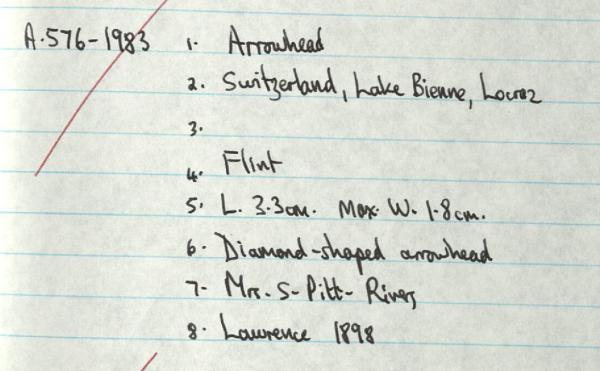 A.576-1983 1. Arrowhead
2. Switzerland, Lake Bienne, Locraz
3.
4. Flint
5. L. 3.3cm. Max. W. 1.8cm.
6. Diamond-shaped arrowhead
7. Mrs. S- Pitt- Rivers
8. Lawrence 1898